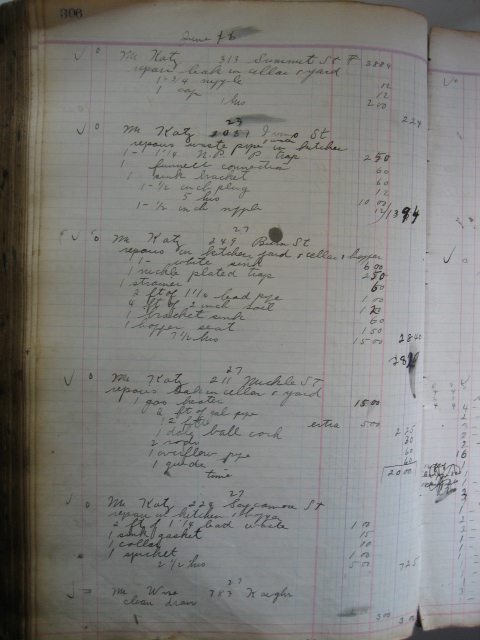 306
June 26
Mr Katz 313 Summit St F 2884
repair leak in cellar & yard
1 - 3/4 nipple 12
1 cap 12
1 hrs 2 00
2 24
23
Mr Katz St
repairs waste pipe in kitchen
1 - 1 1/4 N.P. P trap 2 50
1 funnell connection 60
1 sink bracket 60
1 - 1/2 inch plug 12
5 hrs 10 00
1 - 1/2 inch nipple 12 13 94
27
Mr Katz 249 St
repairs in kitchen yard & cellar & hopper
1 - white sink 6 00
1 nickle plated trap 2 50
1 strainer 60
2 ft of 1 1/2 lead pipe 1 00
4 ft of 2 inch soil 1 20
1 bracket sink 60
1 hopper seat 1 50
7 1/2 hrs 15 00 28 40
27
Mr Katz 211 St
repairs leak in cellar & yard
1 gas heater 15 00
2 ft of gal pipe
12 ft extra 5 00
1 ball cock 2 25
2 rods 30
1 overflow pipe 60
1 guide 60
time 20 00
27
Mr Katz 228 Saycamore St
repair in kitchen & hopper
2 ft of 1 1/4 lead waste 1 00
1 sink gasket 15
1 collar 10
1 spicket 1 00
2 1/2 hrs 5 00 7 25
27
Mr Wise 783
clean drain